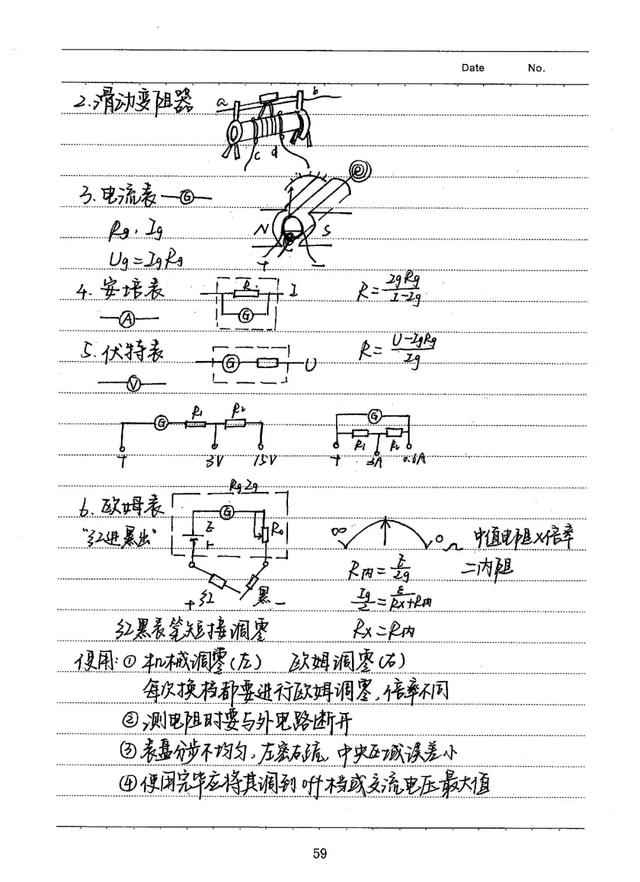 Date No.
2.滑动变阻器 a b
c d
3.电流表 G
Rg,Ig N S
Ug=IgRg + −
4.安培表 R I R=IgRg/I-Ig
A G
5.伏特表 G U R=U-IgRg/Ig
V
G R1 R2 G
R1 R2
+ 3V 15V + 3A 0.6A
Rg Ig
6.欧姆表 G
"红进黑出" E r R0 ∞ 0 Ω 中值电阻×倍率
=内阻
R内=E/Ig
+红 黑− Ig/2=E/Rx+R内
红黑表笔短接调零 Rx=R内
使用:①机械调零(左) 欧姆调零(右)
每次换档都要进行欧姆调零,倍率不同
②测电阻时要与外电路断开
③表盘分步不均匀,左密右疏,中央区域误差小
④使用完毕应将其调到off档或交流电压最大值
59